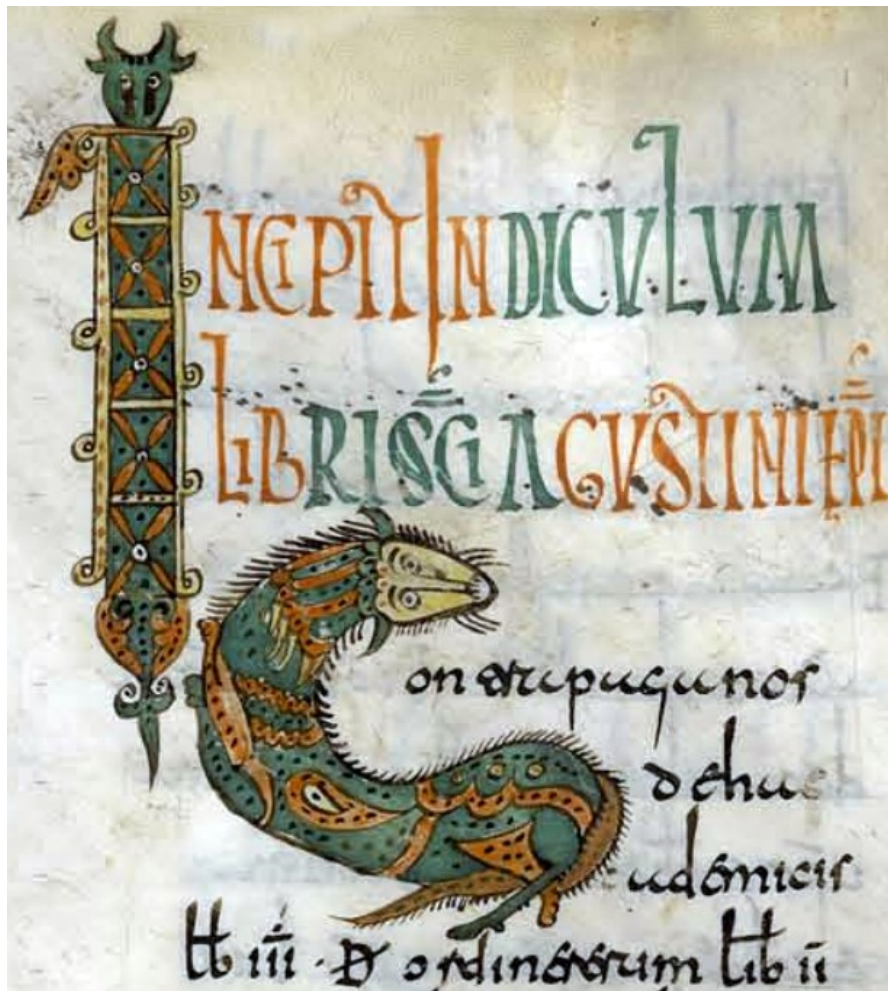 INCIPIT INDICVLVM
LIBRI SCI AGVSTINI EPI
Contra paganos
dehac
ademicis
lib iii · De ordine rerum lib ii